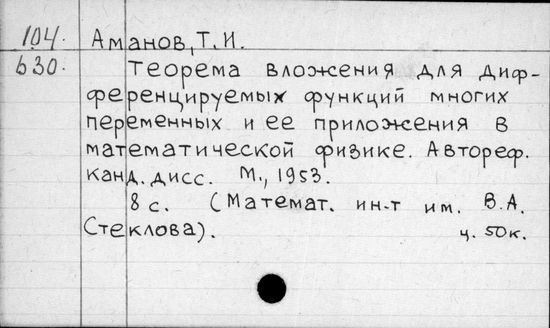 104. Аманов, Т. И.
630. Теорема вложения для диф-
ференцируемых функций многих
переменных и ее приложения в
математической физике. Автореф.
канд. дисс. М., 1953.
8 с. (Математ. ин-т им. В.А.
Стеклова). ц. 50к.